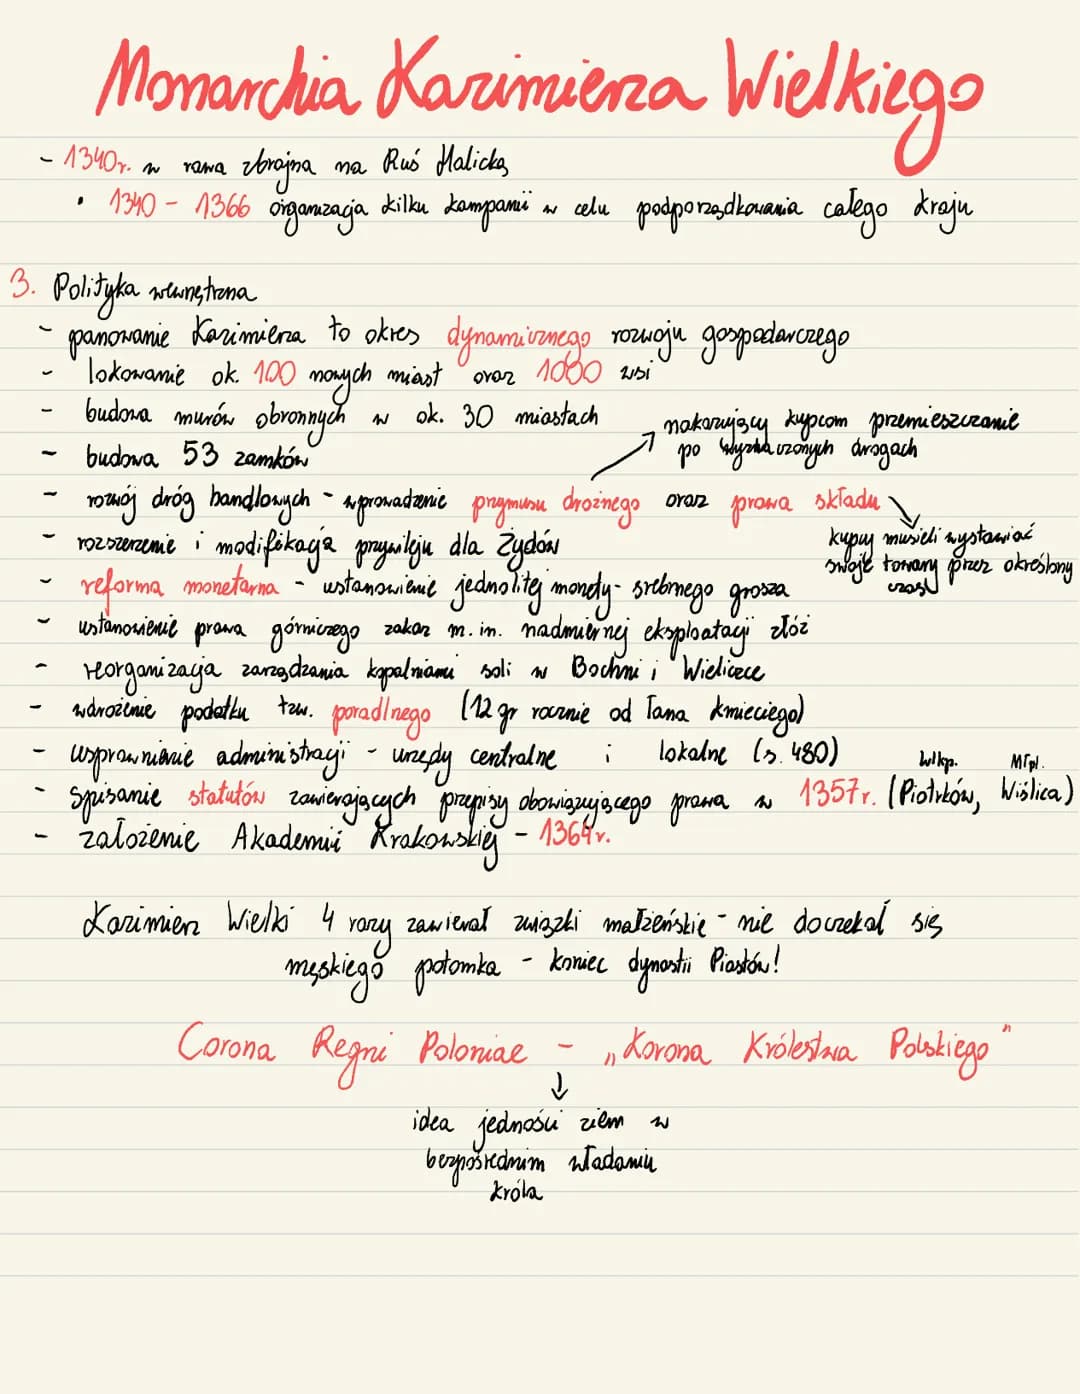 Monarchia Kazimierza Wielkiego
- 1340r. wyprawa zbrojna na Ruś Halicką
• 1340 - 1366 organizacja kilku kampanii w celu podporządkowania całego kraju
3. Polityka wewnętrzna
- panowanie Kazimierza to okres dynamicznego rozwoju gospodarczego
- lokowanie ok. 100 nowych miast oraz 1000 wsi
- budowa murów obronnych w ok. 30 miastach
nakazujący kupcom przemieszczanie
po wyznaczonych drogach
- budowa 53 zamków
- rozwój dróg handlowych - wprowadzenie przymusu drożnego oraz prawa składu
kupcy musieli wystawiać
swoje towary przez określony
czas
- rozszerzenie i modifikacja przywileju dla Żydów
- reforma monetarna - ustanowienie jednolitej monety - srebrnego grosza
- ustanowienie prawa górniczego zakaz m.in. nadmiernej eksploatacji złóż
- reorganizacja zarządzania kopalniami soli w Bochni i Wieliczce
- wdrożenie podatku tzw. poradlnego (12 gr rocznie od łana kmiecego)
- usprawnienie administracji - urzędy centralne i lokalne (s. 480)
wlkp. Młpl.
- Spisanie statutów zawierających przepisy obowiązującego prawa w 1357r. (Piotrków, Wiślica)
- założenie Akademii Krakowskiej - 1364r.
Kazimierz Wielki 4 razy zawierał związki małżeńskie - nie doczekał się
męskiego potomka - koniec dynastii Piastów!
Corona Regni Poloniae - „Korona Królestwa Polskiego"
↓
idea jedności ziem w
bezpośrednim władaniu
króla